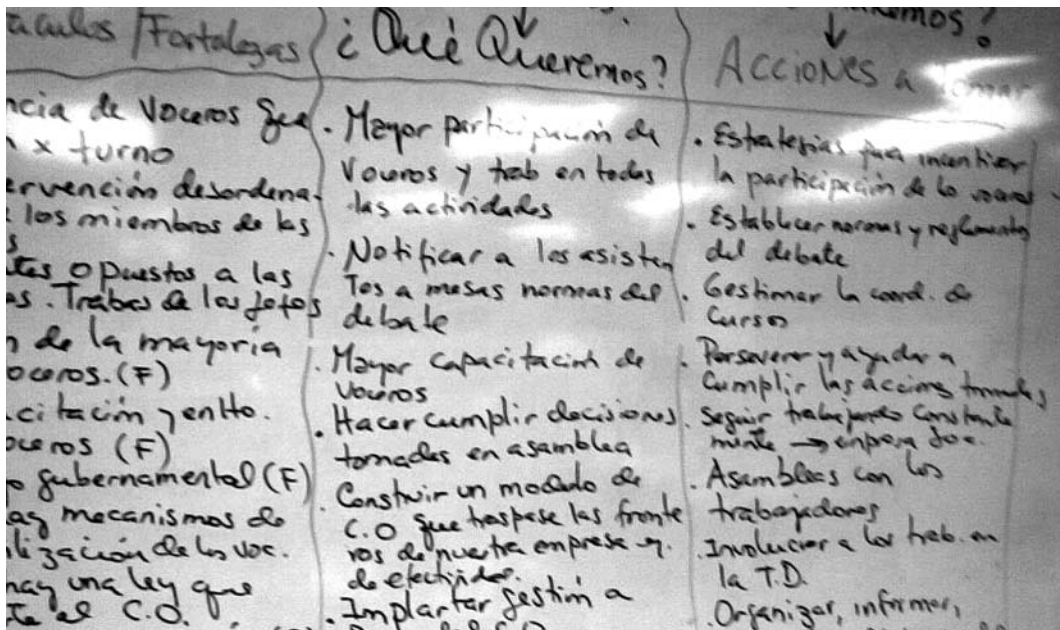 áculos / Fortalezas
ncia de Voceros que
n x turno
ervención desordena-
los miembros de las
s
tes opuestos a las
os. Trabas de los jefes
n de la mayoría
oceros. (F)
citación y entto.
oceros (F)
o gubernamental (F)
ay mecanismos de
lización de los voc.
hay una ley que
te el C.O.
¿Qué Queremos?
. Mayor participación de
Voceros y trab en todas
las actividades
. Notificar a los asisten
tes a mesas normas del
debate
. Mayor capacitacion de
voceros
. Hacer cumplir decisiones
tomadas en asamblea
. Construir un modelo de
C.O que traspase las fronte
ras de nuestra empresa y.
de efectividad.
. Implantar gestión a
remos?
Acciones a tomar
. Estrategias para incentivar
la participación de lo voceros
. Establecer normas y reglamentos
del debate
. Gestionar la coord. de
Cursos
. Perseverar y ayudar a
Cumplir las acciones tomadas
. Seguir trabajando constante
mente → empresa Soc.
. Asambleas con los
trabajadores
. Involucrar a los trab. en
la T.D.
. Organizar, informar,